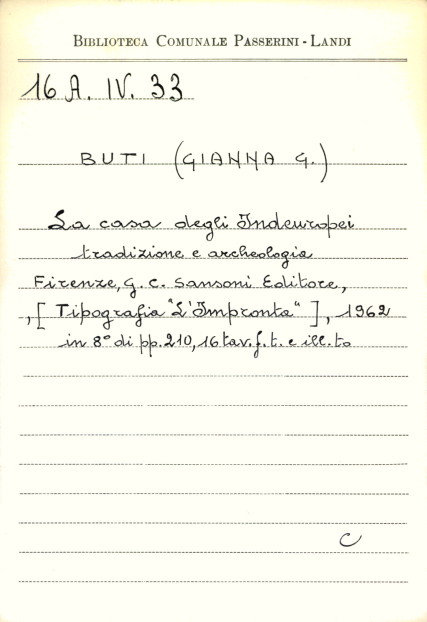 BIBLIOTECA COMUNALE PASSERINI - LANDI
16 A. IV. 33
BUTI (GIANNA G.)
La casa degli Indeuropei
tradizione e archeologia
Firenze, G. C. Sansoni Editore,
, [Tipografia "L'Impronta"], 1962
in 8° di pp. 210, 16 tav. f. t. e ill. to
C